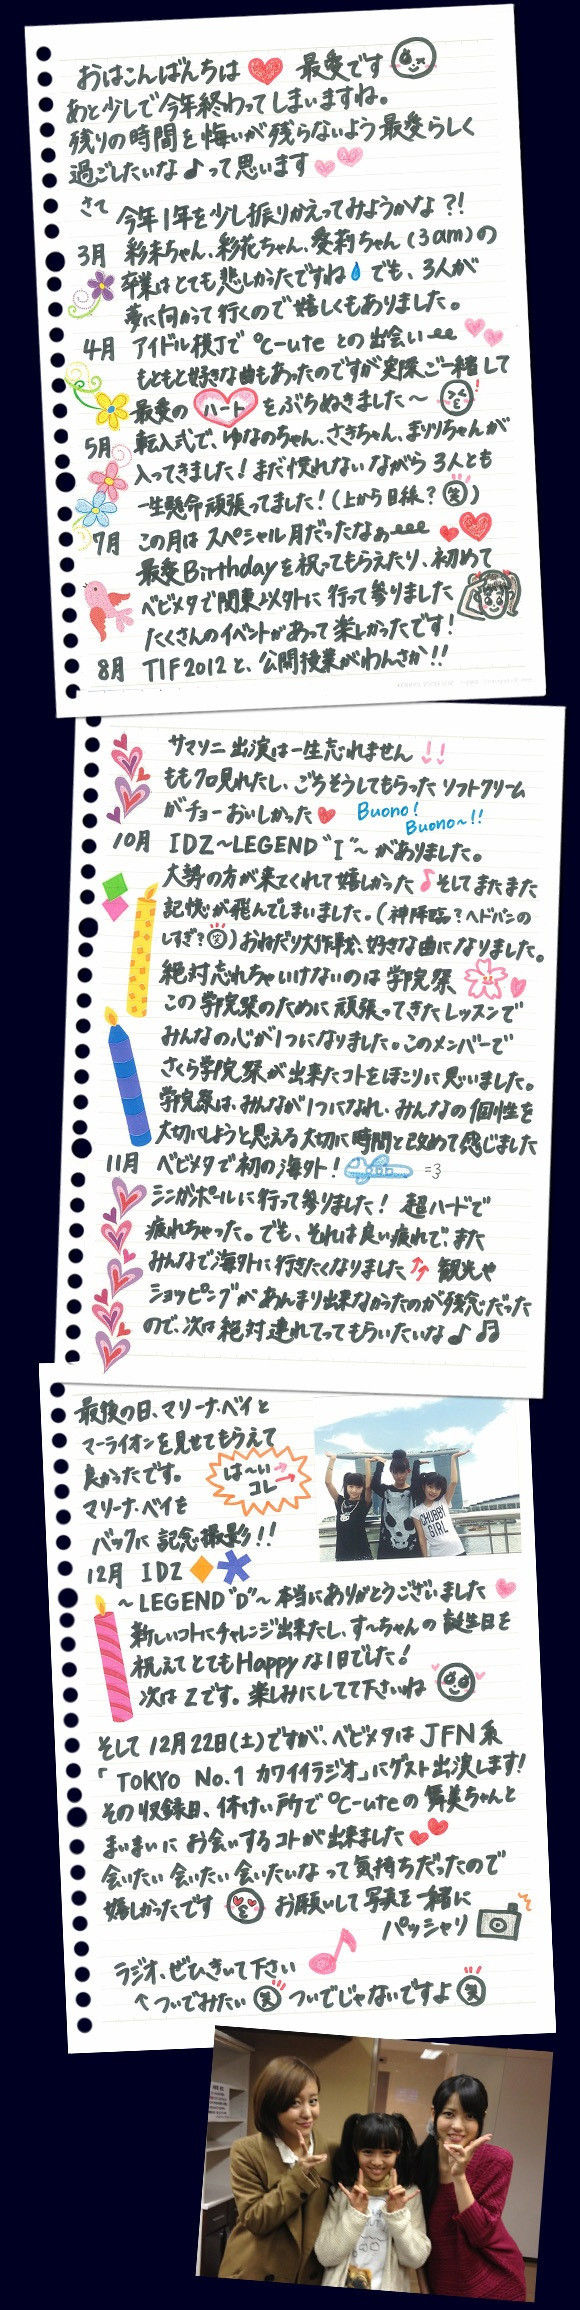 おはこんばんちは 最愛です
あと少しで今年終わってしまいますね。
残りの時間を悔いが残らないよう最愛らしく
過ごしたいな♪って思います
さて 今年1年を少し振りかえってみようかな?!
3月 彩未ちゃん、彩花ちゃん、愛莉ちゃん(3am)の
卒業はとても悲しかったですね でも、3人が
夢に向かって行くので嬉しくもありました。
4月 アイドル横丁で ℃-uteとの出会い
もともと好きな曲もあったのですが実際ご一緒して
最愛の ハート をぶちぬきました〜
5月 転入式で、ゆなのちゃん、さきちゃん、まりりちゃんが
入ってきました! まだ慣れないながら 3人とも
一生懸命頑張ってました!(上から目線? 笑)
7月 この月は スペシャル月だったなぁ
最愛Birthdayを祝ってもらえたり、初めて
ベビメタで関東以外に行って参りました
たくさんのイベントがあって楽しかったです!
8月 TIF2012と、公開授業がわんさか!!
サマソニ 出演は一生忘れません !!
ももクロ見れたし、ごちそうしてもらった ソフトクリーム
がチョーおいしかった Buono!
Buono~!!
10月 IDZ~LEGEND "I"~がありました。
大勢の方が来てくれて嬉しかった♪そしてまたまた
記憶が飛んでしまいました。(神降臨?ヘドバンの
しすぎ? 笑)おねだり大作戦、好きな曲になりました。
絶対忘れちゃいけないのは 学院祭
この学院祭のために頑張ってきたレッスンで
みんなの心が1つになりました。このメンバーで
さくら学院祭が出来たコトをほこりに思いました。
学院祭は、みんなが1つになれ、みんなの個性を
大切にしようと思える大切に時間と改めて感じました
11月 ベビメタで初の海外! =3
シンガポールに行って参りました! 超ハードで
疲れちゃった。でも、それは良い疲れで、また
みんなで海外に行きたくなりました 観光や
ショッピングがあんまり出来なかったのが残念だった
ので、次は絶対連れてってもらいたいな♪♫
最後の日、マリーナ・ベイと
マーライオンを見せてもらえて
良かったです。 は〜い
コレ→
マリーナ・ベイを
バックに 記念撮影!!
CHUBBY
GIRL
12月 IDZ
~LEGEND"D"~本当にありがとうございました
新しいコトにチャレンジ出来たし、す〜ちゃんの誕生日を
祝えてとてもHappyな1日でした!
次はZです。楽しみにしてて下さいね
そして12月22日(土)ですが、ベビメタはJFN系
「TOKYO No.1 カワイイラジオ」にゲスト出演します!
その収録日、休けい所で℃-uteの舞美ちゃんと
まいまいに お会いするコトが出来ました
会いたい 会いたい 会いたいなって気持ちだったので
嬉しかったです お願いして写真を一緒に
パッシャリ
ラジオ、ぜひきいて下さい
↑ついでみたい 笑 ついでじゃないですよ 笑